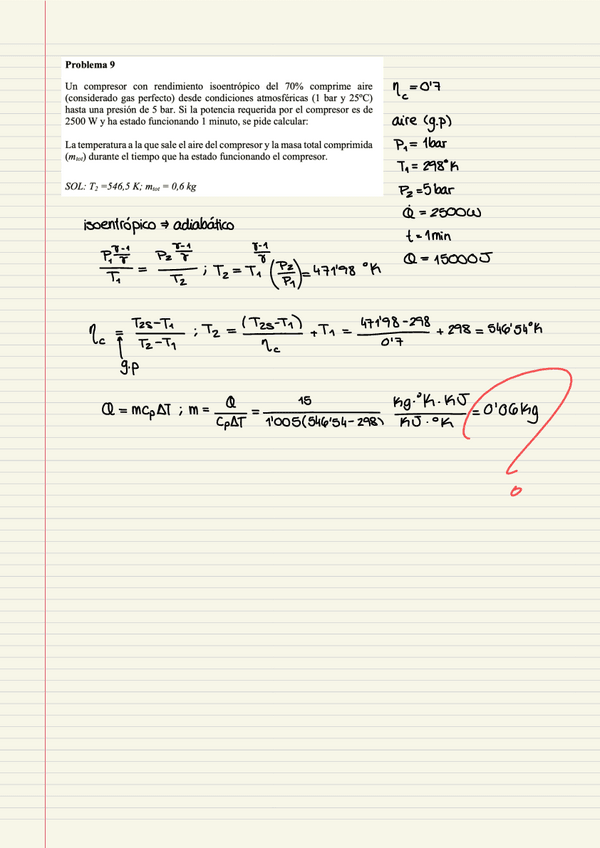 Problema 9
Un compresor con rendimiento isoentrópico del 70% comprime aire
(considerado gas perfecto) desde condiciones atmosféricas (1 bar y 25ºC)
hasta una presión de 5 bar. Si la potencia requerida por el compresor es de
2500 W y ha estado funcionando 1 minuto, se pide calcular:
La temperatura a la que sale el aire del compresor y la masa total comprimida
(m_tot) durante el tiempo que ha estado funcionando el compresor.
SOL: T₂ =546,5 K; m_tot = 0,6 kg
η_c = 0'7
aire (g.p)
P₁ = 1bar
T₁ = 298°K
P₂ = 5 bar
Q̇ = 2500W
t = 1min
Q = 15000J
isoentrópico ⇒ adiabático
P₁^((γ-1)/γ) / T₁ = P₂^((γ-1)/γ) / T₂ ; T₂ = T₁ (P₂/P₁)^((γ-1)/γ) = 471'98 °K
η_c = (T₂s-T₁)/(T₂-T₁) ; T₂ = (T₂s-T₁)/η_c + T₁ = (471'98-298)/0'7 + 298 = 546'54°K
↑
g.p
Q = mCpΔT ; m = Q/(CpΔT) = 15/(1'005(546'54-298)) (Kg·°K·KJ)/(KJ·°K) = 0'06Kg ?